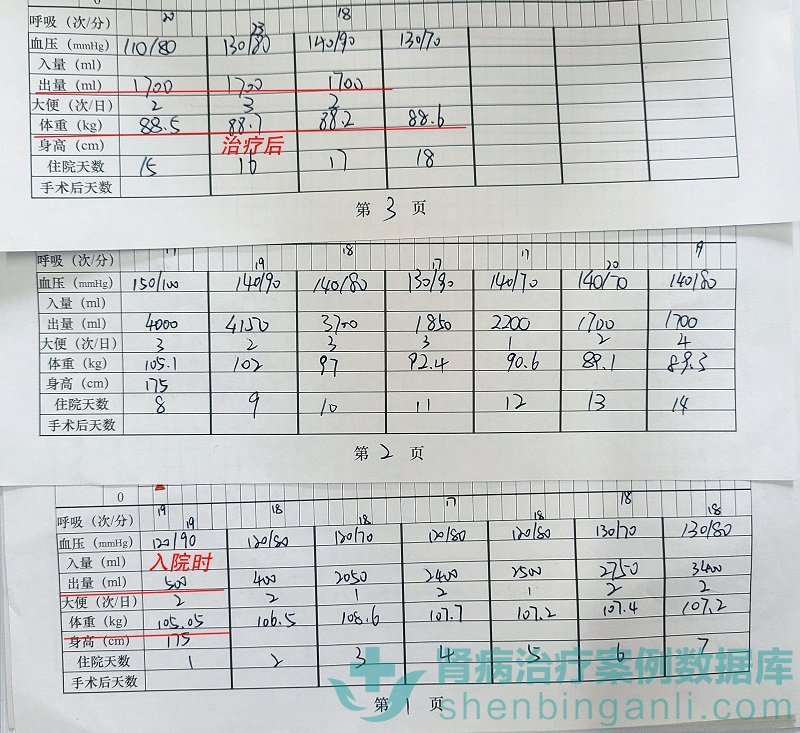 0
呼吸（次/分） 20 23 18
血压（mmHg） 110/80 130/80 140/90 130/70
入量（ml）
出量（ml） 1700 1700 1700
大便（次/日） 2 3 2
体重（kg） 88.5 88.7 88.2 88.6
身高（cm） 治疗后
住院天数 15 16 17 18
手术后天数
第 3 页
呼吸（次/分） 19 18 17 17 20 19
血压（mmHg） 150/100 140/90 140/80 130/90 140/70 140/70 140/80
入量（ml）
出量（ml） 4000 4150 3700 1850 2200 1700 1700
大便（次/日） 3 2 3 3 1 2 4
体重（kg） 105.1 102 97 92.4 90.6 89.1 89.3
身高（cm） 175
住院天数 8 9 10 11 12 13 14
手术后天数
第 2 页
0
呼吸（次/分） 19 19 18 18 17 18 18 18
血压（mmHg） 120/90 120/80 120/70 120/80 120/80 130/70 130/80
入量（ml） 入院时
出量（ml） 500 400 2050 2400 2500 2750 3400
大便（次/日） 2 2 1 2 1 2 2
体重（kg） 105.05 106.5 108.6 107.7 107.2 107.4 107.2
身高（cm） 175
住院天数 1 2 3 4 5 6 7
手术后天数
第 1 页
肾病治疗案例数据库
shenbinganli.com